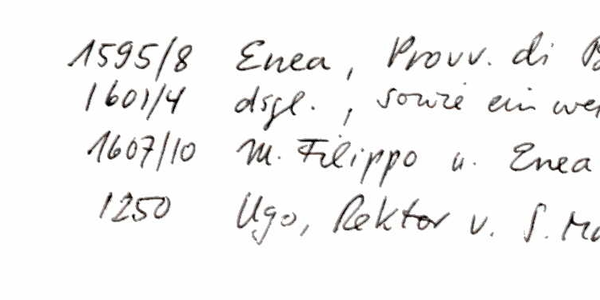 1595/8 Enea, Provv. di
1601/4 dsgl., sowie ein
1607/10 M. Filippo u. Enea
1250 Ugo, Rektor v. S.